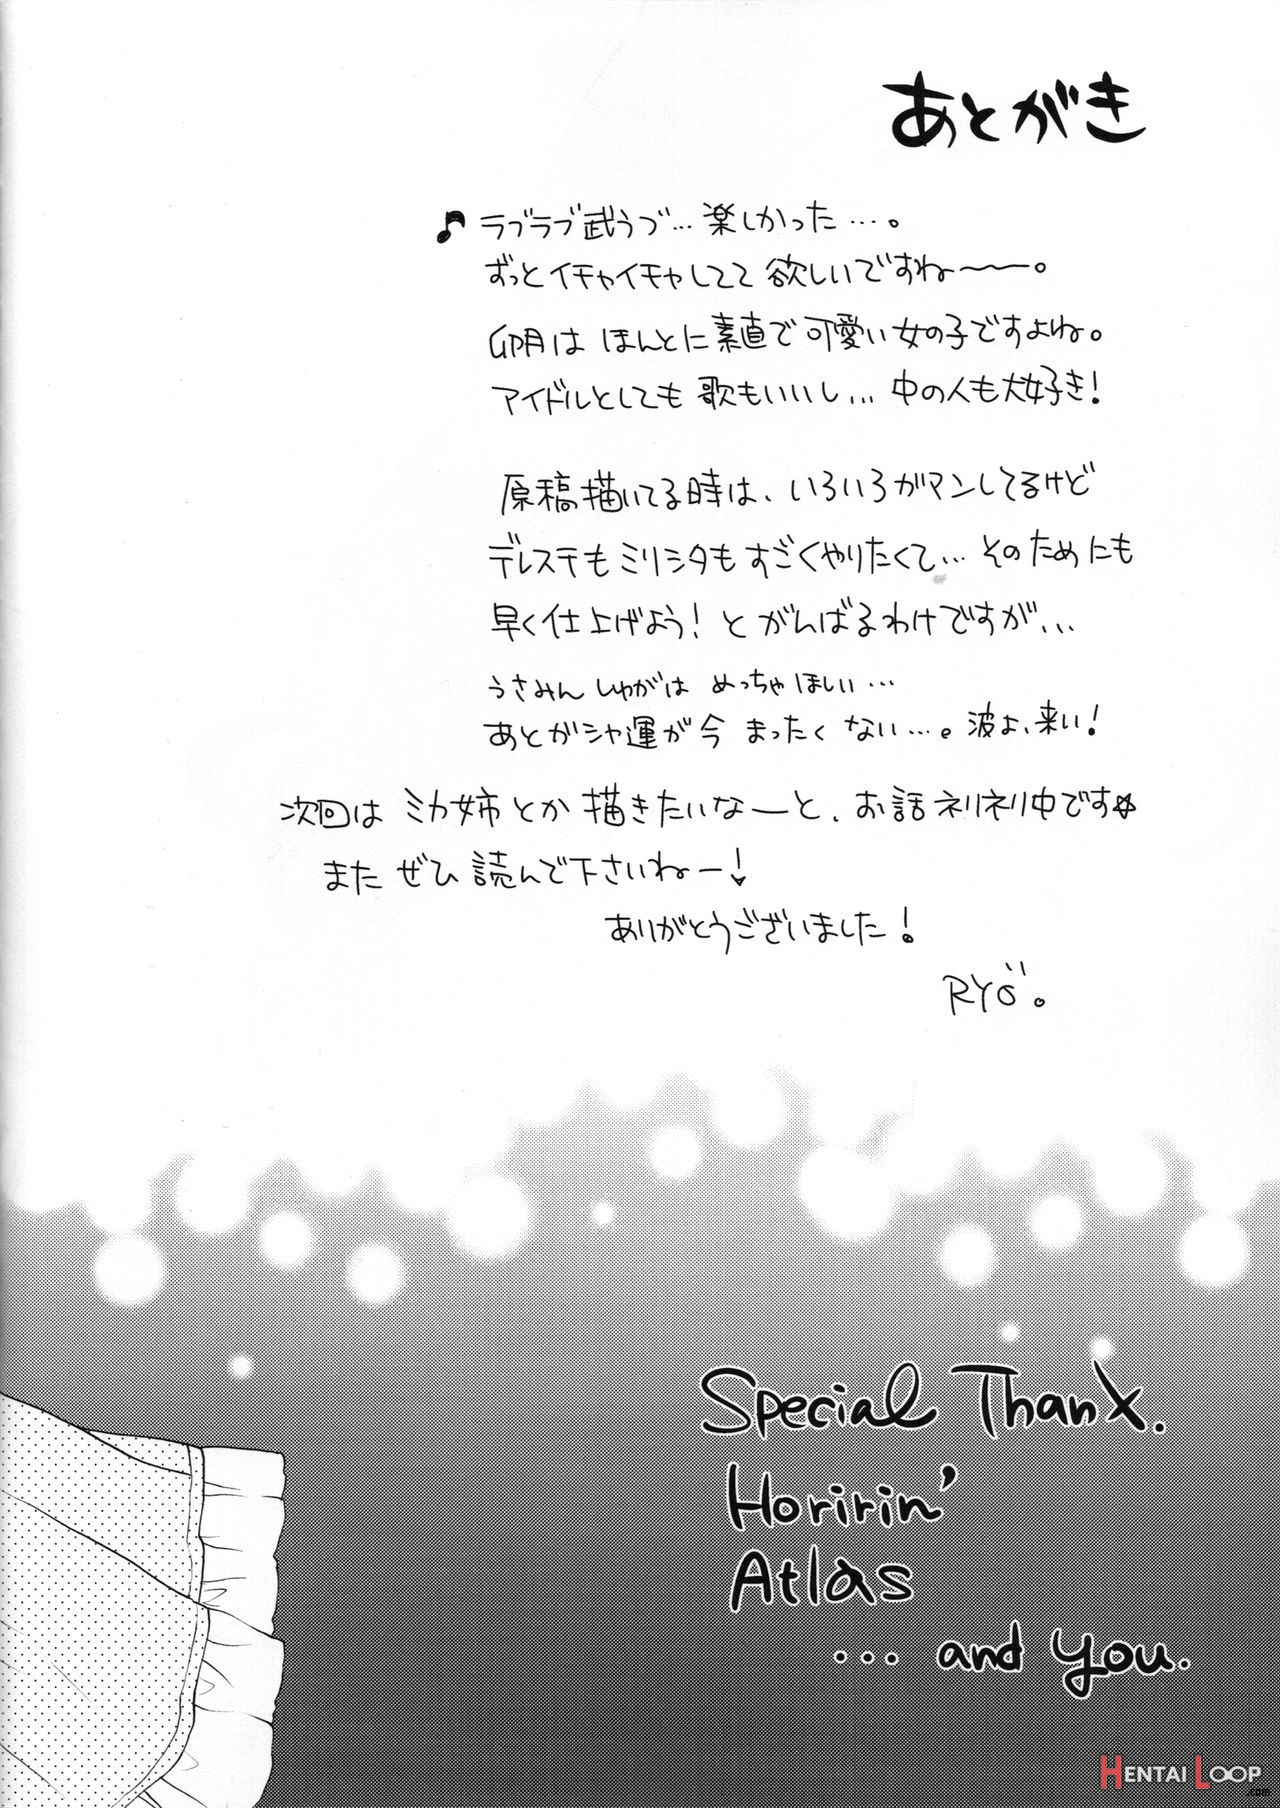 あとがき
♪ラブラブ武うづ…楽しかった…。
ずっとイチャイチャしてて欲しいですね〜〜。
卯月はほんとに素直で可愛い女の子ですよね。
アイドルとしても歌もいいし…中の人も大好き!
原稿描いてる時は、いろいろガマンしてるけど
デレステもミリシタもすごくやりたくて…そのためにも
早く仕上げよう!とがんばるわけですが…
うさみんしゅがはめっちゃほしい…
あとガシャ運が今まったくない…。波よ、来い!
次回はミカ姉とか描きたいなーと、お話ネリネリ中です☆
またぜひ読んで下さいねー!
ありがとうございました!
RYö。
Special ThanX.
Horirin'
Atlas
... and you.
HENTAI LOOP
.com